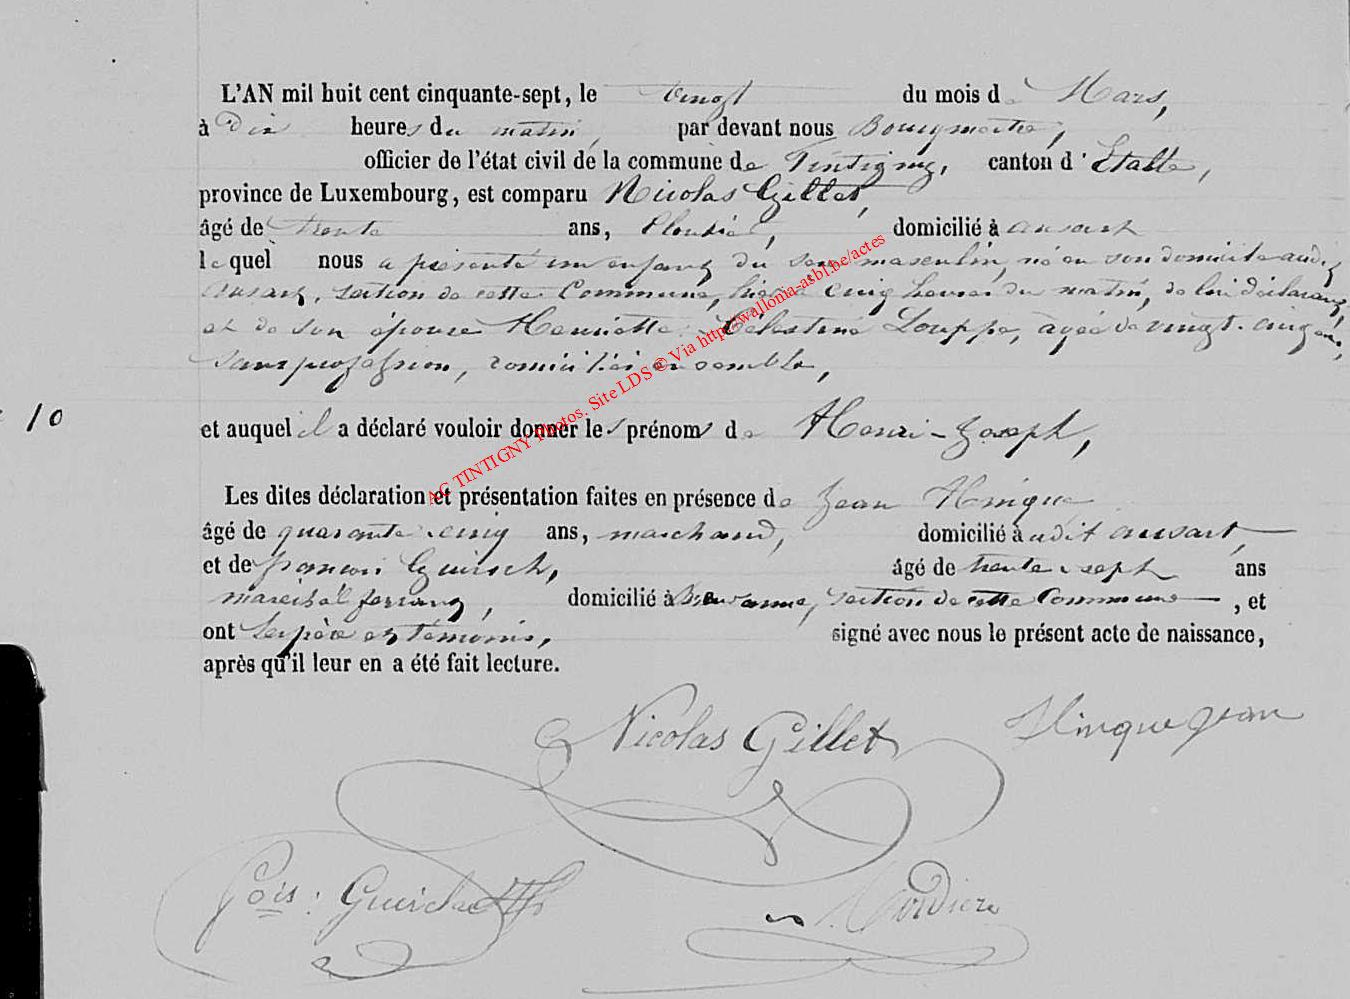 L'AN mil huit cent cinquante-sept, le vingt du mois de Mars,
à Dix heures du matin, par devant nous Bourgmestre,
officier de l'état civil de la commune de Tintigny, canton d'Etalle,
province de Luxembourg, est comparu Nicolas Gillet,
âgé de trente ans, domicilié à ansart
lequel nous a présenté un enfant du sexe masculin, né en son domicile audit
ansart, section de cette Commune, hier à cinq heures du matin, de lui déclarant,
et de son épouse Henriette Célestine Louppe, âgée de vingt-cinq ans,
sans profession, domiciliés ensemble,
10
et auquel il a déclaré vouloir donner les prénoms de Henri-Joseph,
Les dites déclaration et présentation faites en présence de Jean Hinque
âgé de quarante-cinq ans, marchand, domicilié à udit ansart,
et de françois Guirsch, âgé de trente-sept ans
maréchal ferrant, domicilié à section de cette Commune, et
ont les père et témoins, signé avec nous le présent acte de naissance,
après qu'il leur en a été fait lecture.
Nicolas Gillet Hinque Jean
fois: 
AC TINTIGNY Photos. Site LDS © Via http://wallonia-asbl.be/actes